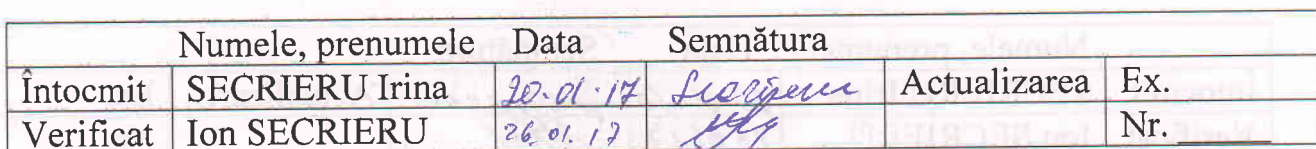 Numele, prenumele Data Semnătura
Întocmit SECRIERU Irina 20.01.17 Actualizarea Ex.
Verificat Ion SECRIERU 26.01.17 Nr. ______